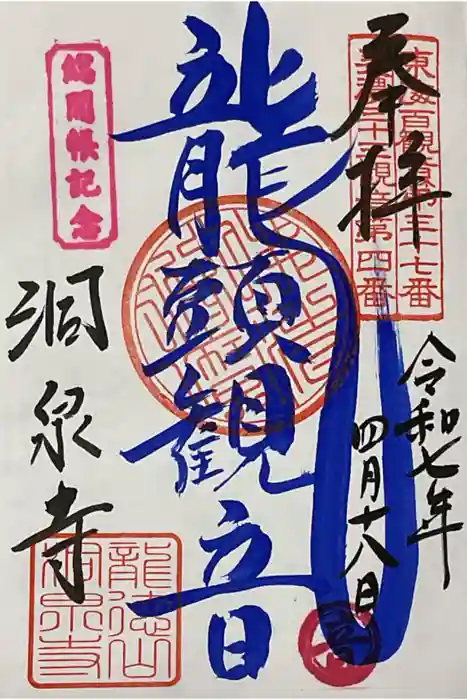 奉拝
東海百観音第三十七番
三十三観音第四番
令和七年
四月十八日
龍頭観音
御開帳記念
洞泉寺
龍徳山
洞泉寺